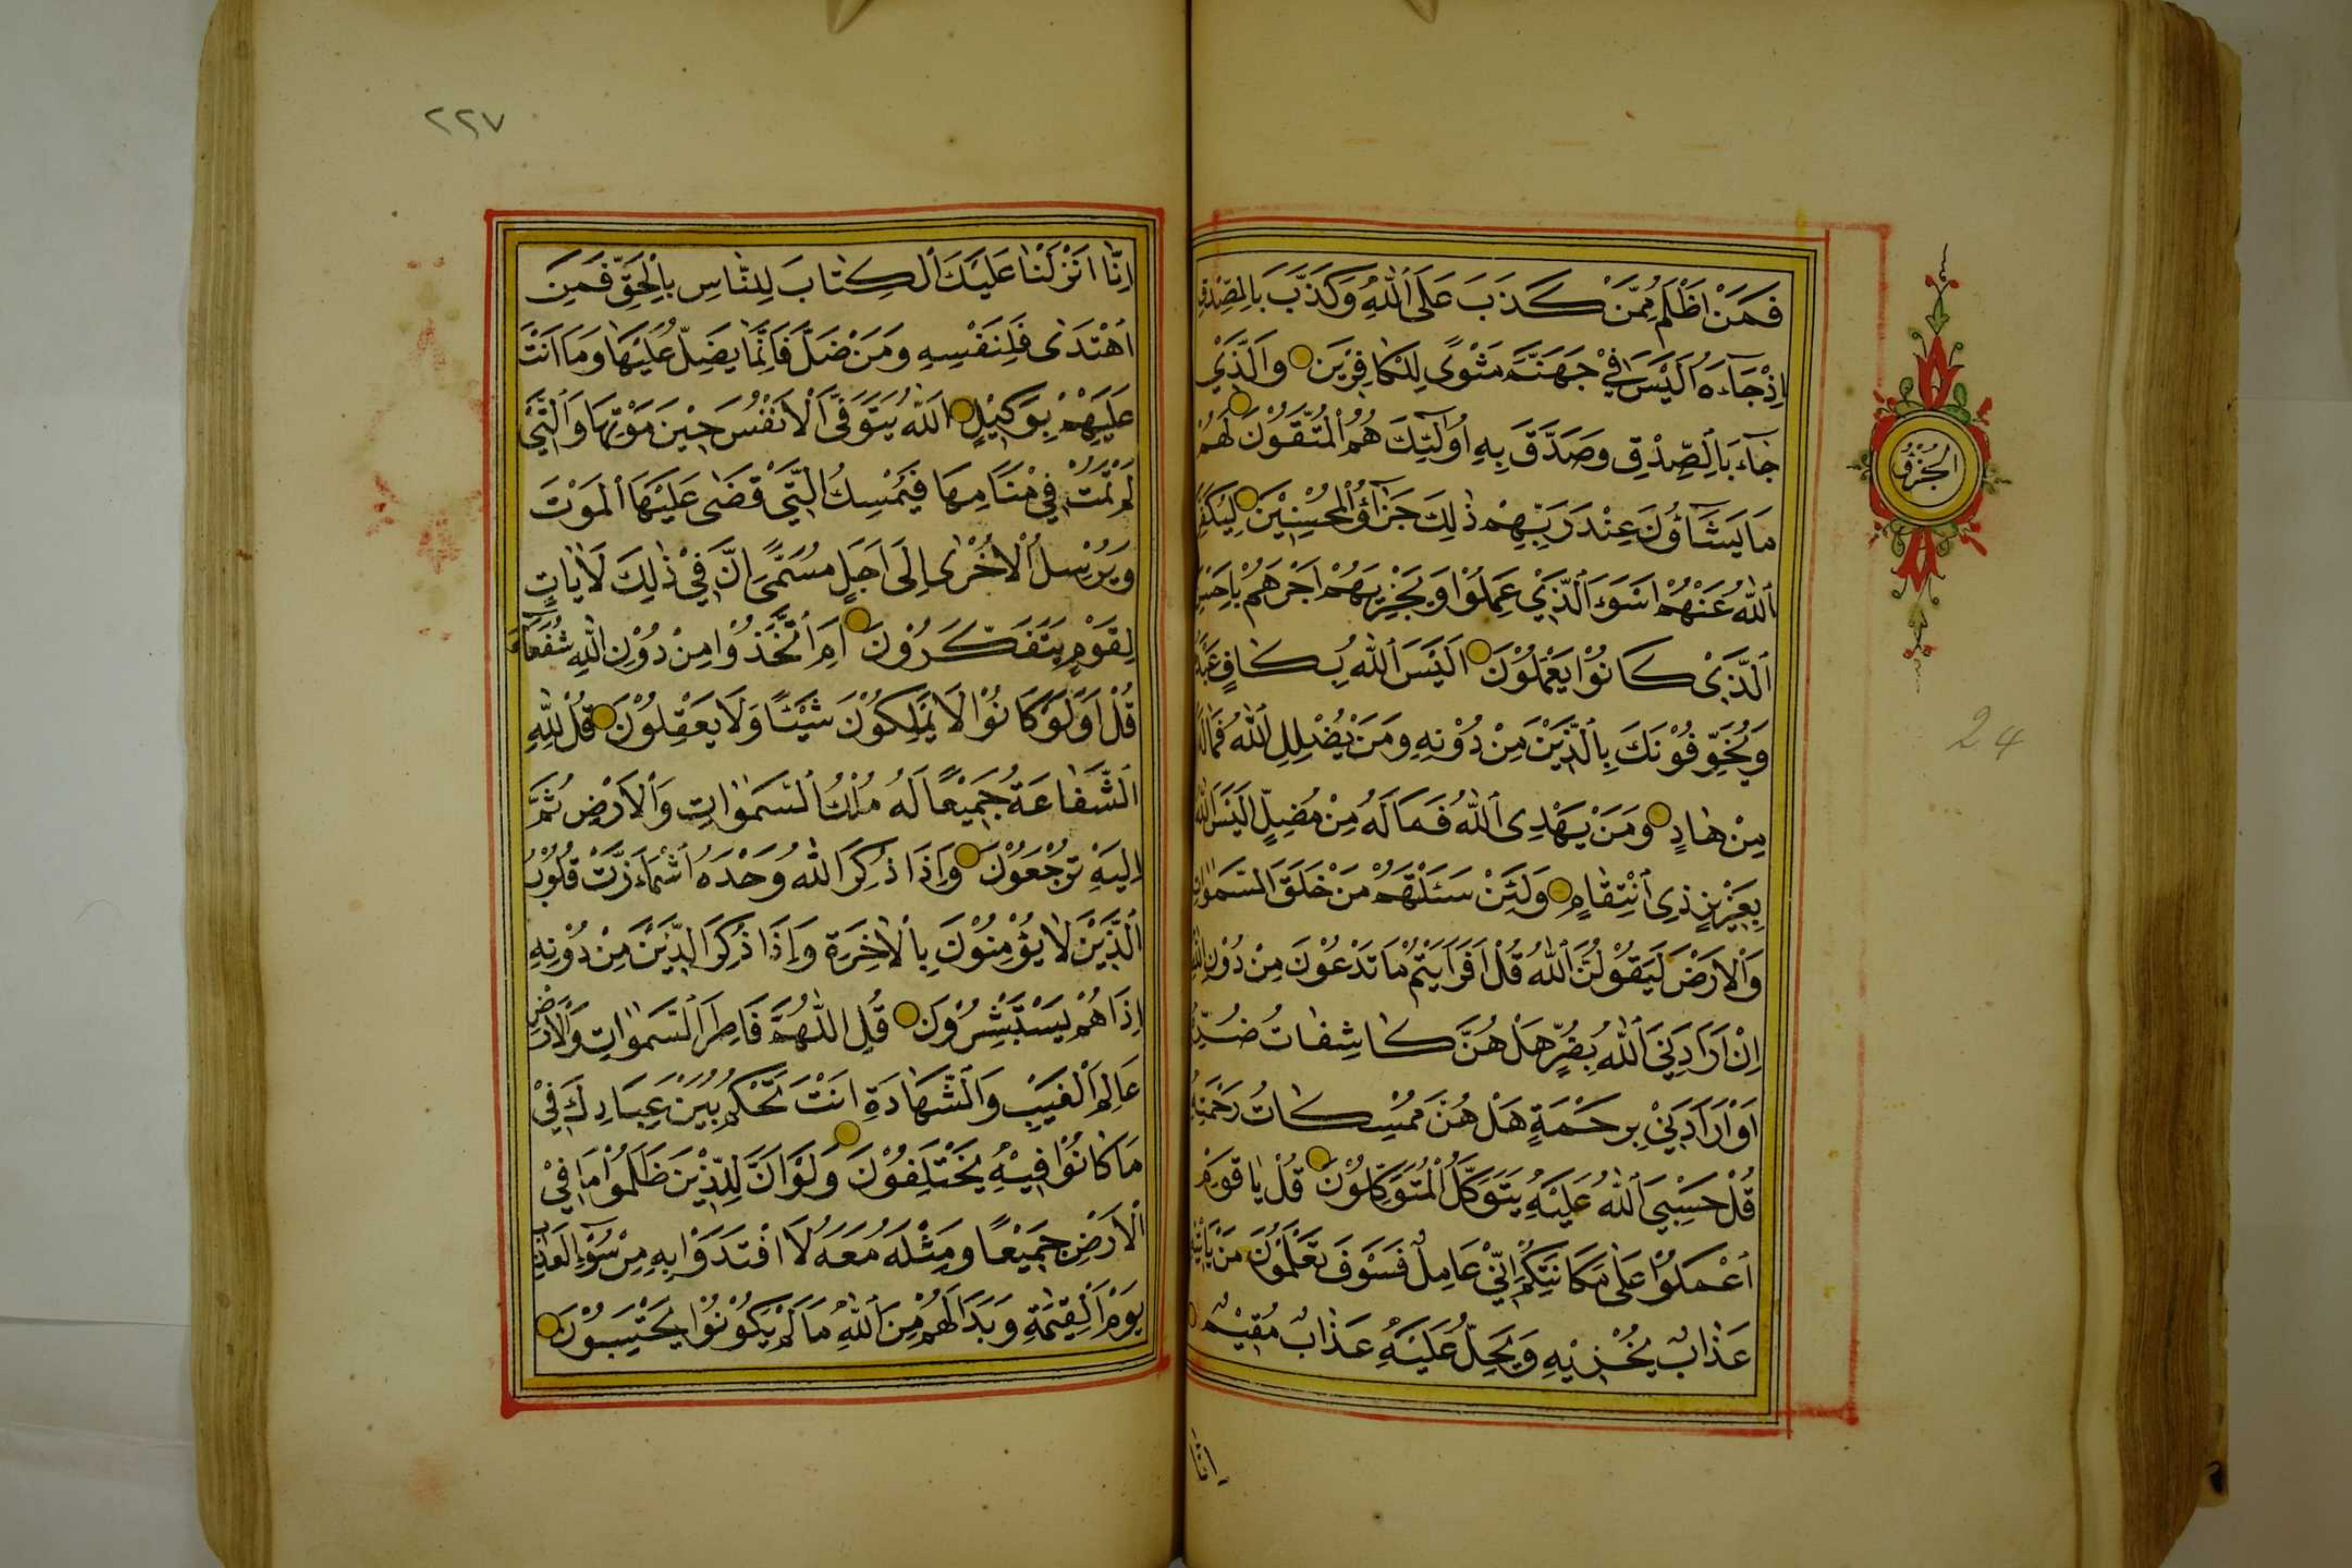 فَمَنْ اَظْلَمُ مِمَّنْ كَذَبَ عَلَى ٱللّٰهِ وَكَذَّبَ بِالصِّدْقِ
اِذْ جَآءَهُ اَلَيْسَ فِيْ جَهَنَّمَ مَثْوًى لِلْكَافِرِيْنَ وَالَّذِيْ
جَآءَ بِالصِّدْقِ وَصَدَّقَ بِهٖ اُولٰٓئِكَ هُمُ الْمُتَّقُوْنَ لَهُمْ
مَا يَشَآؤُنَ عِنْدَ رَبِّهِمْ ذٰلِكَ جَزَآؤُ الْمُحْسِنِيْنَ لِيُكَفِّرَ
ٱللّٰهُ عَنْهُمْ اَسْوَءَ الَّذِيْ عَمِلُوْا وَيَجْزِيَهُمْ اَجْرَهُمْ بِاَحْسَنِ
الَّذِيْ كَانُوْا يَعْمَلُوْنَ اَلَيْسَ ٱللّٰهُ بِكَافٍ عَبْدَهُ
وَيُخَوِّفُوْنَكَ بِالَّذِيْنَ مِنْ دُوْنِهٖ وَمَنْ يُضْلِلِ ٱللّٰهُ فَمَا لَهُ
مِنْ هَادٍ وَمَنْ يَهْدِى ٱللّٰهُ فَمَا لَهُ مِنْ مُضِلٍّ اَلَيْسَ ٱللّٰهُ
بِعَزِيْزٍ ذِى ٱنْتِقَامٍ وَلَئِنْ سَئَلْتَهُمْ مَنْ خَلَقَ السَّمٰوَاتِ
وَٱلْاَرْضَ لَيَقُوْلُنَّ ٱللّٰهُ قُلْ اَفَرَاَيْتُمْ مَا تَدْعُوْنَ مِنْ دُوْنِ ٱللّٰهِ
اِنْ اَرَادَنِيَ ٱللّٰهُ بِضُرٍّ هَلْ هُنَّ كَاشِفَاتُ ضُرِّهٖ
اَوْ اَرَادَنِيْ بِرَحْمَةٍ هَلْ هُنَّ مُمْسِكَاتُ رَحْمَتِهٖ
قُلْ حَسْبِيَ ٱللّٰهُ عَلَيْهِ يَتَوَكَّلُ الْمُتَوَكِّلُوْنَ قُلْ يَا قَوْمِ
ٱعْمَلُوْا عَلٰى مَكَانَتِكُمْ اِنِّيْ عَامِلٌ فَسَوْفَ تَعْلَمُوْنَ مَنْ يَاْتِيْهِ
عَذَابٌ يُخْزِيْهِ وَيَحِلُّ عَلَيْهِ عَذَابٌ مُقِيْمٌ
اِنَّا
الجزؤ
24
٢٢٧
اِنَّا اَنْزَلْنَا عَلَيْكَ ٱلْكِتَابَ لِلنَّاسِ بِالْحَقِّ فَمَنِ
ٱهْتَدٰى فَلِنَفْسِهٖ وَمَنْ ضَلَّ فَاِنَّمَا يَضِلُّ عَلَيْهَا وَمَا اَنْتَ
عَلَيْهِمْ بِوَكِيْلٍ اَللّٰهُ يَتَوَفَّى ٱلْاَنْفُسَ حِيْنَ مَوْتِهَا وَالَّتِيْ
لَمْ تَمُتْ فِيْ مَنَامِهَا فَيُمْسِكُ الَّتِيْ قَضٰى عَلَيْهَا ٱلْمَوْتَ
وَيُرْسِلُ ٱلْاُخْرٰى اِلٰى اَجَلٍ مُسَمًّى اِنَّ فِيْ ذٰلِكَ لَاٰيَاتٍ
لِقَوْمٍ يَتَفَكَّرُوْنَ اَمِ ٱتَّخَذُوْا مِنْ دُوْنِ اللّٰهِ شُفَعَآءَ
قُلْ اَوَلَوْ كَانُوْا لَا يَمْلِكُوْنَ شَيْئًا وَلَا يَعْقِلُوْنَ قُلْ لِلّٰهِ
الشَّفَاعَةُ جَمِيْعًا لَهُ مُلْكُ السَّمٰوَاتِ وَٱلْاَرْضِ ثُمَّ
اِلَيْهِ تُرْجَعُوْنَ وَاِذَا ذُكِرَ اللّٰهُ وَحْدَهُ ٱشْمَاَزَّتْ قُلُوْبُ
الَّذِيْنَ لَا يُؤْمِنُوْنَ بِالْاٰخِرَةِ وَاِذَا ذُكِرَ الَّذِيْنَ مِنْ دُوْنِهٖ
اِذَا هُمْ يَسْتَبْشِرُوْنَ قُلِ اللّٰهُمَّ فَاطِرَ السَّمٰوَاتِ وَٱلْاَرْضِ
عَالِمَ الْغَيْبِ وَالشَّهَادَةِ اَنْتَ تَحْكُمُ بَيْنَ عِبَادِكَ فِيْ
مَا كَانُوْا فِيْهِ يَخْتَلِفُوْنَ وَلَوْ اَنَّ لِلَّذِيْنَ ظَلَمُوْا مَا فِيْ
ٱلْاَرْضِ جَمِيْعًا وَمِثْلَهُ مَعَهُ لَا افْتَدَوْا بِهٖ مِنْ سُوْٓءِ الْعَذَابِ
يَوْمَ الْقِيٰمَةِ وَبَدَا لَهُمْ مِنَ ٱللّٰهِ مَا لَمْ يَكُوْنُوْا يَحْتَسِبُوْنَ